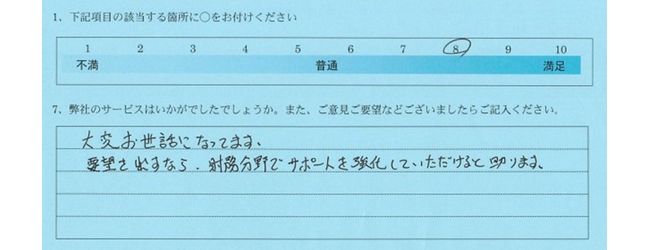 1、下記項目の該当する箇所に○をお付けください
1 2 3 4 5 6 7 8 9 10
不満 普通 満足
7、弊社のサービスはいかがでしたでしょうか。また、ご意見ご要望などございましたらご記入ください。
大変お世話になってます、
要望を出すなら、財務分野でサポートを強化していただけると助ります。